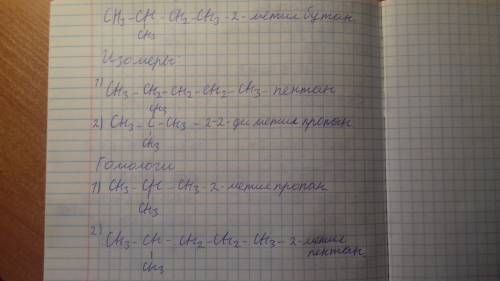 CH₃-CH-CH₂-CH₃-2-метил бутан
CH₃
Изомеры:
1) CH₃-CH₂-CH₂-CH₂-CH₃-пентан
CH₃
2) CH₃-C-CH₃-2-2-ди метил пропан
CH₃
Гомологи
1) CH₃-CH-CH₃-2-метил пропан
CH₃
2) CH₃-CH-CH₂-CH₂-CH₃-2-метил
пентан
CH₃